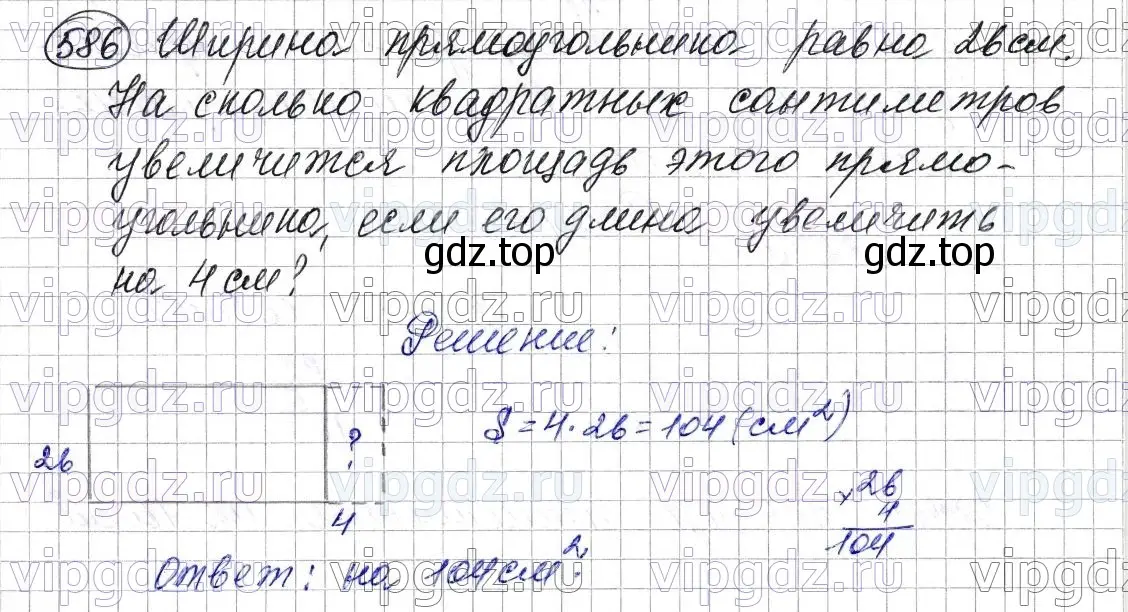 586 Ширина прямоугольника равна 26 см.
На сколько квадратных сантиметров
увеличится площадь этого прямо-
угольника, если его длина увеличить
на 4 см?
gdz.top gdz.top
Решение:
26 ? S = 4 · 26 = 104 (см²)
4
× 26
4
104
Ответ: на 104 см².
vipgdz.ru